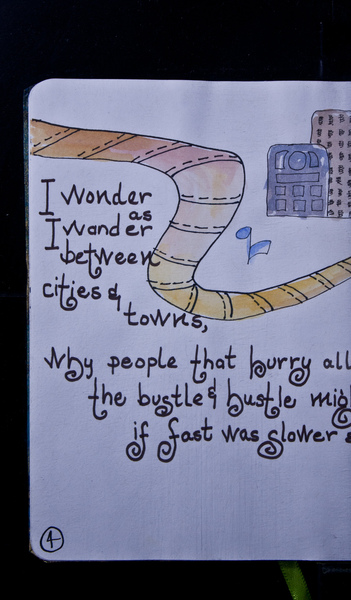 I wonder
as
I wander
between
cities &
towns,
Why people that hurry all
the bustle & hustle
if fast was slower
4